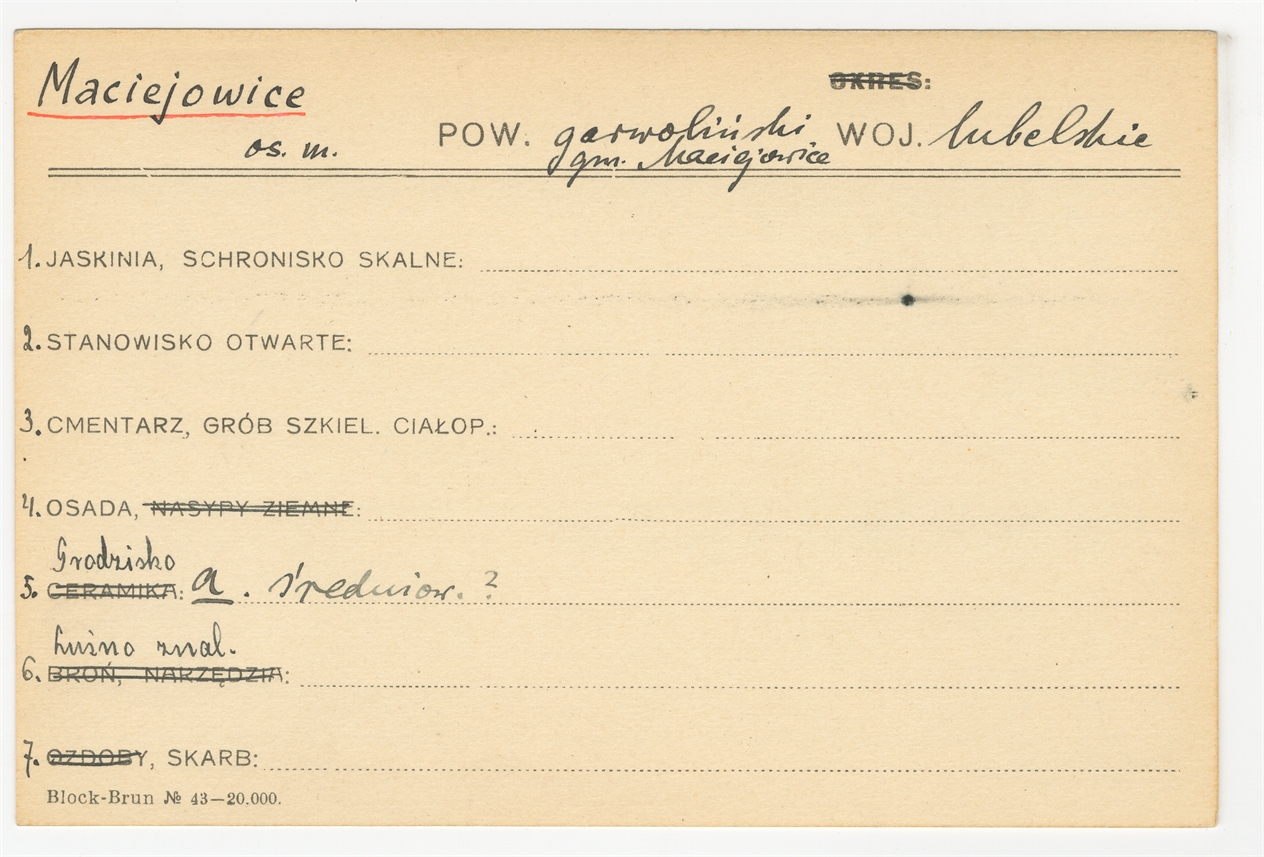 Maciejowice
OKRES:
os. m. POW. garwoliński WOJ. lubelskie
gm. Maciejowice
1. JASKINIA, SCHRONISKO SKALNE:
2. STANOWISKO OTWARTE:
3. CMENTARZ, GRÓB SZKIEL. CIAŁOP.:
4. OSADA, NASYPY ZIEMNE:
Grodzisko
5. CERAMIKA: a. średniow. ?
Luźno znal.
6. BROŃ, NARZĘDZIA:
7. OZDOBY, SKARB:
Block-Brun № 43—20.000.